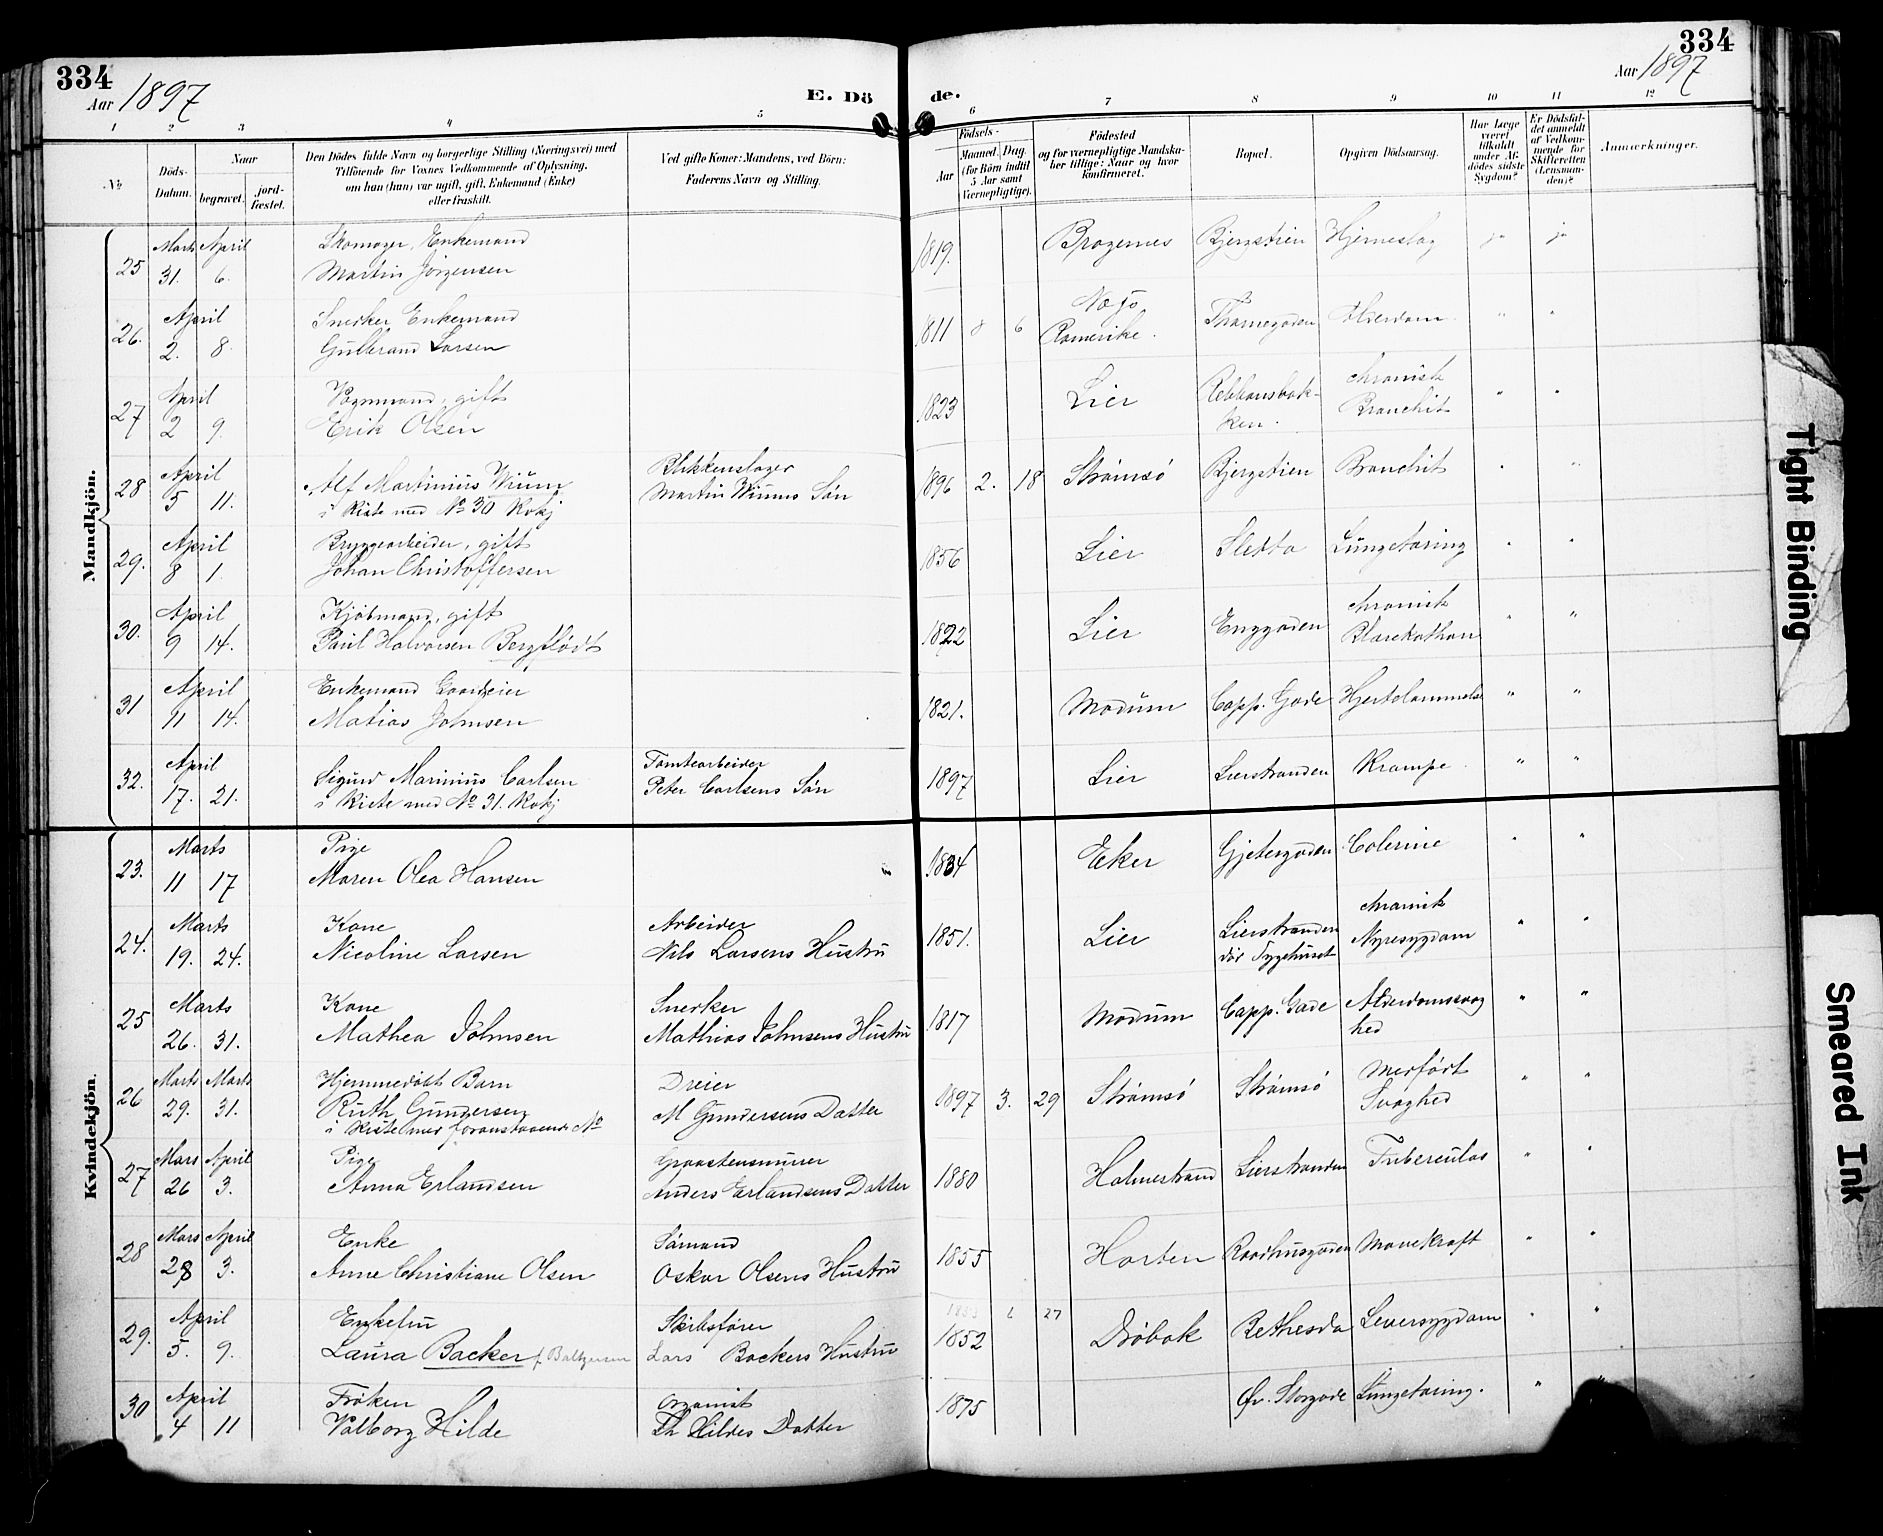 334
Aar 1897
E. Dö
de.
334
Aar 1897
1 2 3 4 5 6 7 8 9 10 11 12
No.
Döds-Datum.
Naar
begravet.
jord-fæstet.
Den Dødes fulde Navn og borgerlige Stilling (Næringsvei) med
Tilföiende for Voxnes Vedkommende af Oplysning,
om han (hun) var ugift, gift, Enkemand (Enke)
eller fraskilt.
Ved gifte Koner: Mandens, ved Börn:
Faderens Navn og Stilling.
Födsels-
Aar
Maaned Dag
(for Börn indtil
5 Aar samt
Værnepligtige).
Födested
og for værnepligtige Mandska-
ber tillige: Naar og hvor
konfirmeret.
Bopæl.
Opgiven Dödsaarsag.
Har Læge
været
tilkaldt
under Af-
dödes sidste
Sygdom?
Er Dödsfal-
det anmeldt
af Vedkom-
mende for
Skifteretten
(Lensman-
den)?
Anmærkninger.
Mandkjön.
25 Marts 31. April 6. Skomager, Enkemand
Martin Jörgensen 1819. Bragernes Bjergstien Hjerneslag ja ja
26. April 2. 8. Snedker Enkemand
Gulbrand Larsen 1811 8 6 Næs, Romerike. Thornegaden Alderdom " "
27 April 2 9. Vognmand, gift
Erik Olsen 1823 Lier Rebbansbakken. chronisk Bronchit " "
28 April 5 11. Alf Martinius Wium
i Kiste med No 30 Kvkj
Blikkenslager
Martin Wiums Sön 1896 2. 18 Strömsö Bjergstien Bronchit " "
29. April 8 1 Bryggearbeider, gift
Johan Christoffersen 1856 Lier Sletta Lungetæring " "
30. April 9 14. Kjöbmand, gift
Paul Halvorsen Bergflödt 1822 Lier Enggaden chronisk Blærekathar " "
31 April 11 14. Enkemand Gaardeier
Matias Johnsen 1821. Modum Capp. Gade Hjertelammelse " "
32. April 17. 21. Sigurd Marinius Carlsen
i Kiste med No 31. Kvkj
Tomtearbeider
Peter Carlsens Sön 1897 Lier Lierstranden Krampe. " "
Kvindekjön.
23. Marts 11 17 Pige
Maren Olea Hansen 1834 Eker Gjetergaden Colerine " "
24. Marts 19. 24. Kone
Nicoline Larsen
Arbeider
Nils Larsens Hustru 1851. Lier Lierstranden
död Sygehuset chronisk
Nyresygdom " "
25 Marts 26. 31. Kone
Mathea Johnsen
Snedker
Mathias Johnsens Hustru 1817 Modum Capp. Gade Alderdomssvag
hed " "
26 Marts 29. Marts 31. Hjemmedöbt Barn
Ruth Gundersen
i Kiste med foranstaaende No
Dreier
M Gundersens Datter 1897 3. 29 Strömsö Strömsö Medfödt
Svaghed " "
27 Mars 26 April 3. Pige
Anna Erlandsen
Graastensmurer
Anders Erlandsens Datter 1880 Holmestrand Lierstranden Tuberculos " "
28 Mars 28 April 3. Enke
Anne Christiane Olsen
Sömand
Oskar Olsens Hustru 1855 Horten Raadhusgaden Mavekræft " "
29. April 5. 9. Enkefru
Laura Backer f. Baltzersen
Skibsförer
Lars Backers Hustru 1853 27
1852 Dröbak Bethesda Leversygdom " "
30 April 4 11 Fröken
Valborg Hilde
Organist
Th Hildes Datter 1875 Öv. Storgade Lungetæring. " "
Tight Binding
Smeared Ink